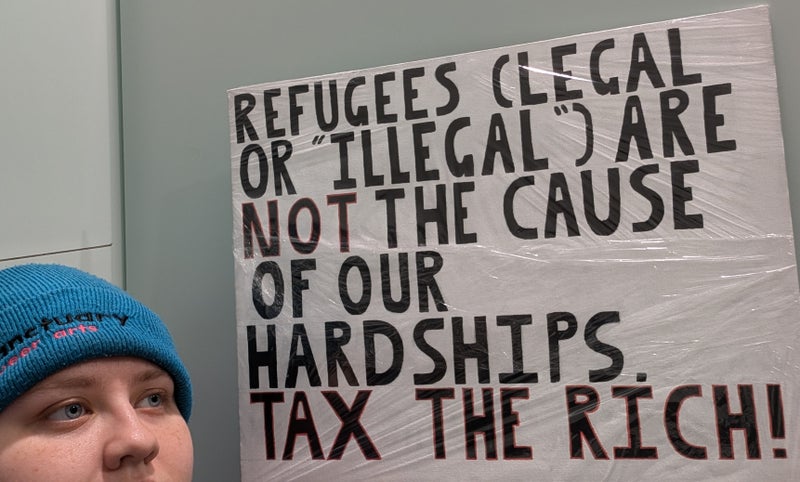 REFUGEES (LEGAL
OR "ILLEGAL") ARE
NOT THE CAUSE
OF OUR
HARDSHIPS.
TAX THE RICH!
anctuary
ueer arts